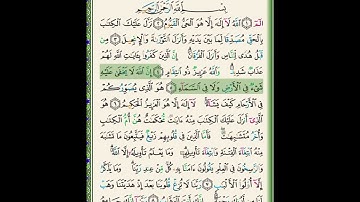 بِسْمِ اللَّهِ الرَّحْمَٰنِ الرَّحِيمِ
الٓمٓ ۝ اللَّهُ لَا إِلَٰهَ إِلَّا هُوَ الْحَيُّ الْقَيُّومُ ۝ نَزَّلَ عَلَيْكَ الْكِتَٰبَ
بِالْحَقِّ مُصَدِّقًا لِّمَا بَيْنَ يَدَيْهِ وَأَنزَلَ التَّوْرَىٰةَ وَالْإِنجِيلَ ۝
مِن قَبْلُ هُدًى لِّلنَّاسِ وَأَنزَلَ الْفُرْقَانَ إِنَّ الَّذِينَ كَفَرُوا بِـَٔايَٰتِ اللَّهِ لَهُمْ
عَذَابٌ شَدِيدٌ وَاللَّهُ عَزِيزٌ ذُو انتِقَامٍ ۝ إِنَّ اللَّهَ لَا يَخْفَىٰ عَلَيْهِ
شَىْءٌ فِى الْأَرْضِ وَلَا فِى السَّمَآءِ ۝ هُوَ الَّذِى يُصَوِّرُكُمْ
فِى الْأَرْحَامِ كَيْفَ يَشَآءُ لَآ إِلَٰهَ إِلَّا هُوَ الْعَزِيزُ الْحَكِيمُ ۝ هُوَ
الَّذِىٓ أَنزَلَ عَلَيْكَ الْكِتَٰبَ مِنْهُ ءَايَٰتٌ مُّحْكَمَٰتٌ هُنَّ أُمُّ الْكِتَٰبِ
وَأُخَرُ مُتَشَٰبِهَٰتٌ فَأَمَّا الَّذِينَ فِى قُلُوبِهِمْ زَيْغٌ فَيَتَّبِعُونَ مَا تَشَٰبَهَ
مِنْهُ ابْتِغَآءَ الْفِتْنَةِ وَابْتِغَآءَ تَأْوِيلِهِ وَمَا يَعْلَمُ تَأْوِيلَهُٓ إِلَّا اللَّهُ
وَالرَّٰسِخُونَ فِى الْعِلْمِ يَقُولُونَ ءَامَنَّا بِهِ كُلٌّ مِّنْ عِندِ رَبِّنَا وَمَا يَذَّكَّرُ
إِلَّآ أُو۟لُوا الْأَلْبَٰبِ ۝ رَبَّنَا لَا تُزِغْ قُلُوبَنَا بَعْدَ إِذْ هَدَيْتَنَا وَهَبْ